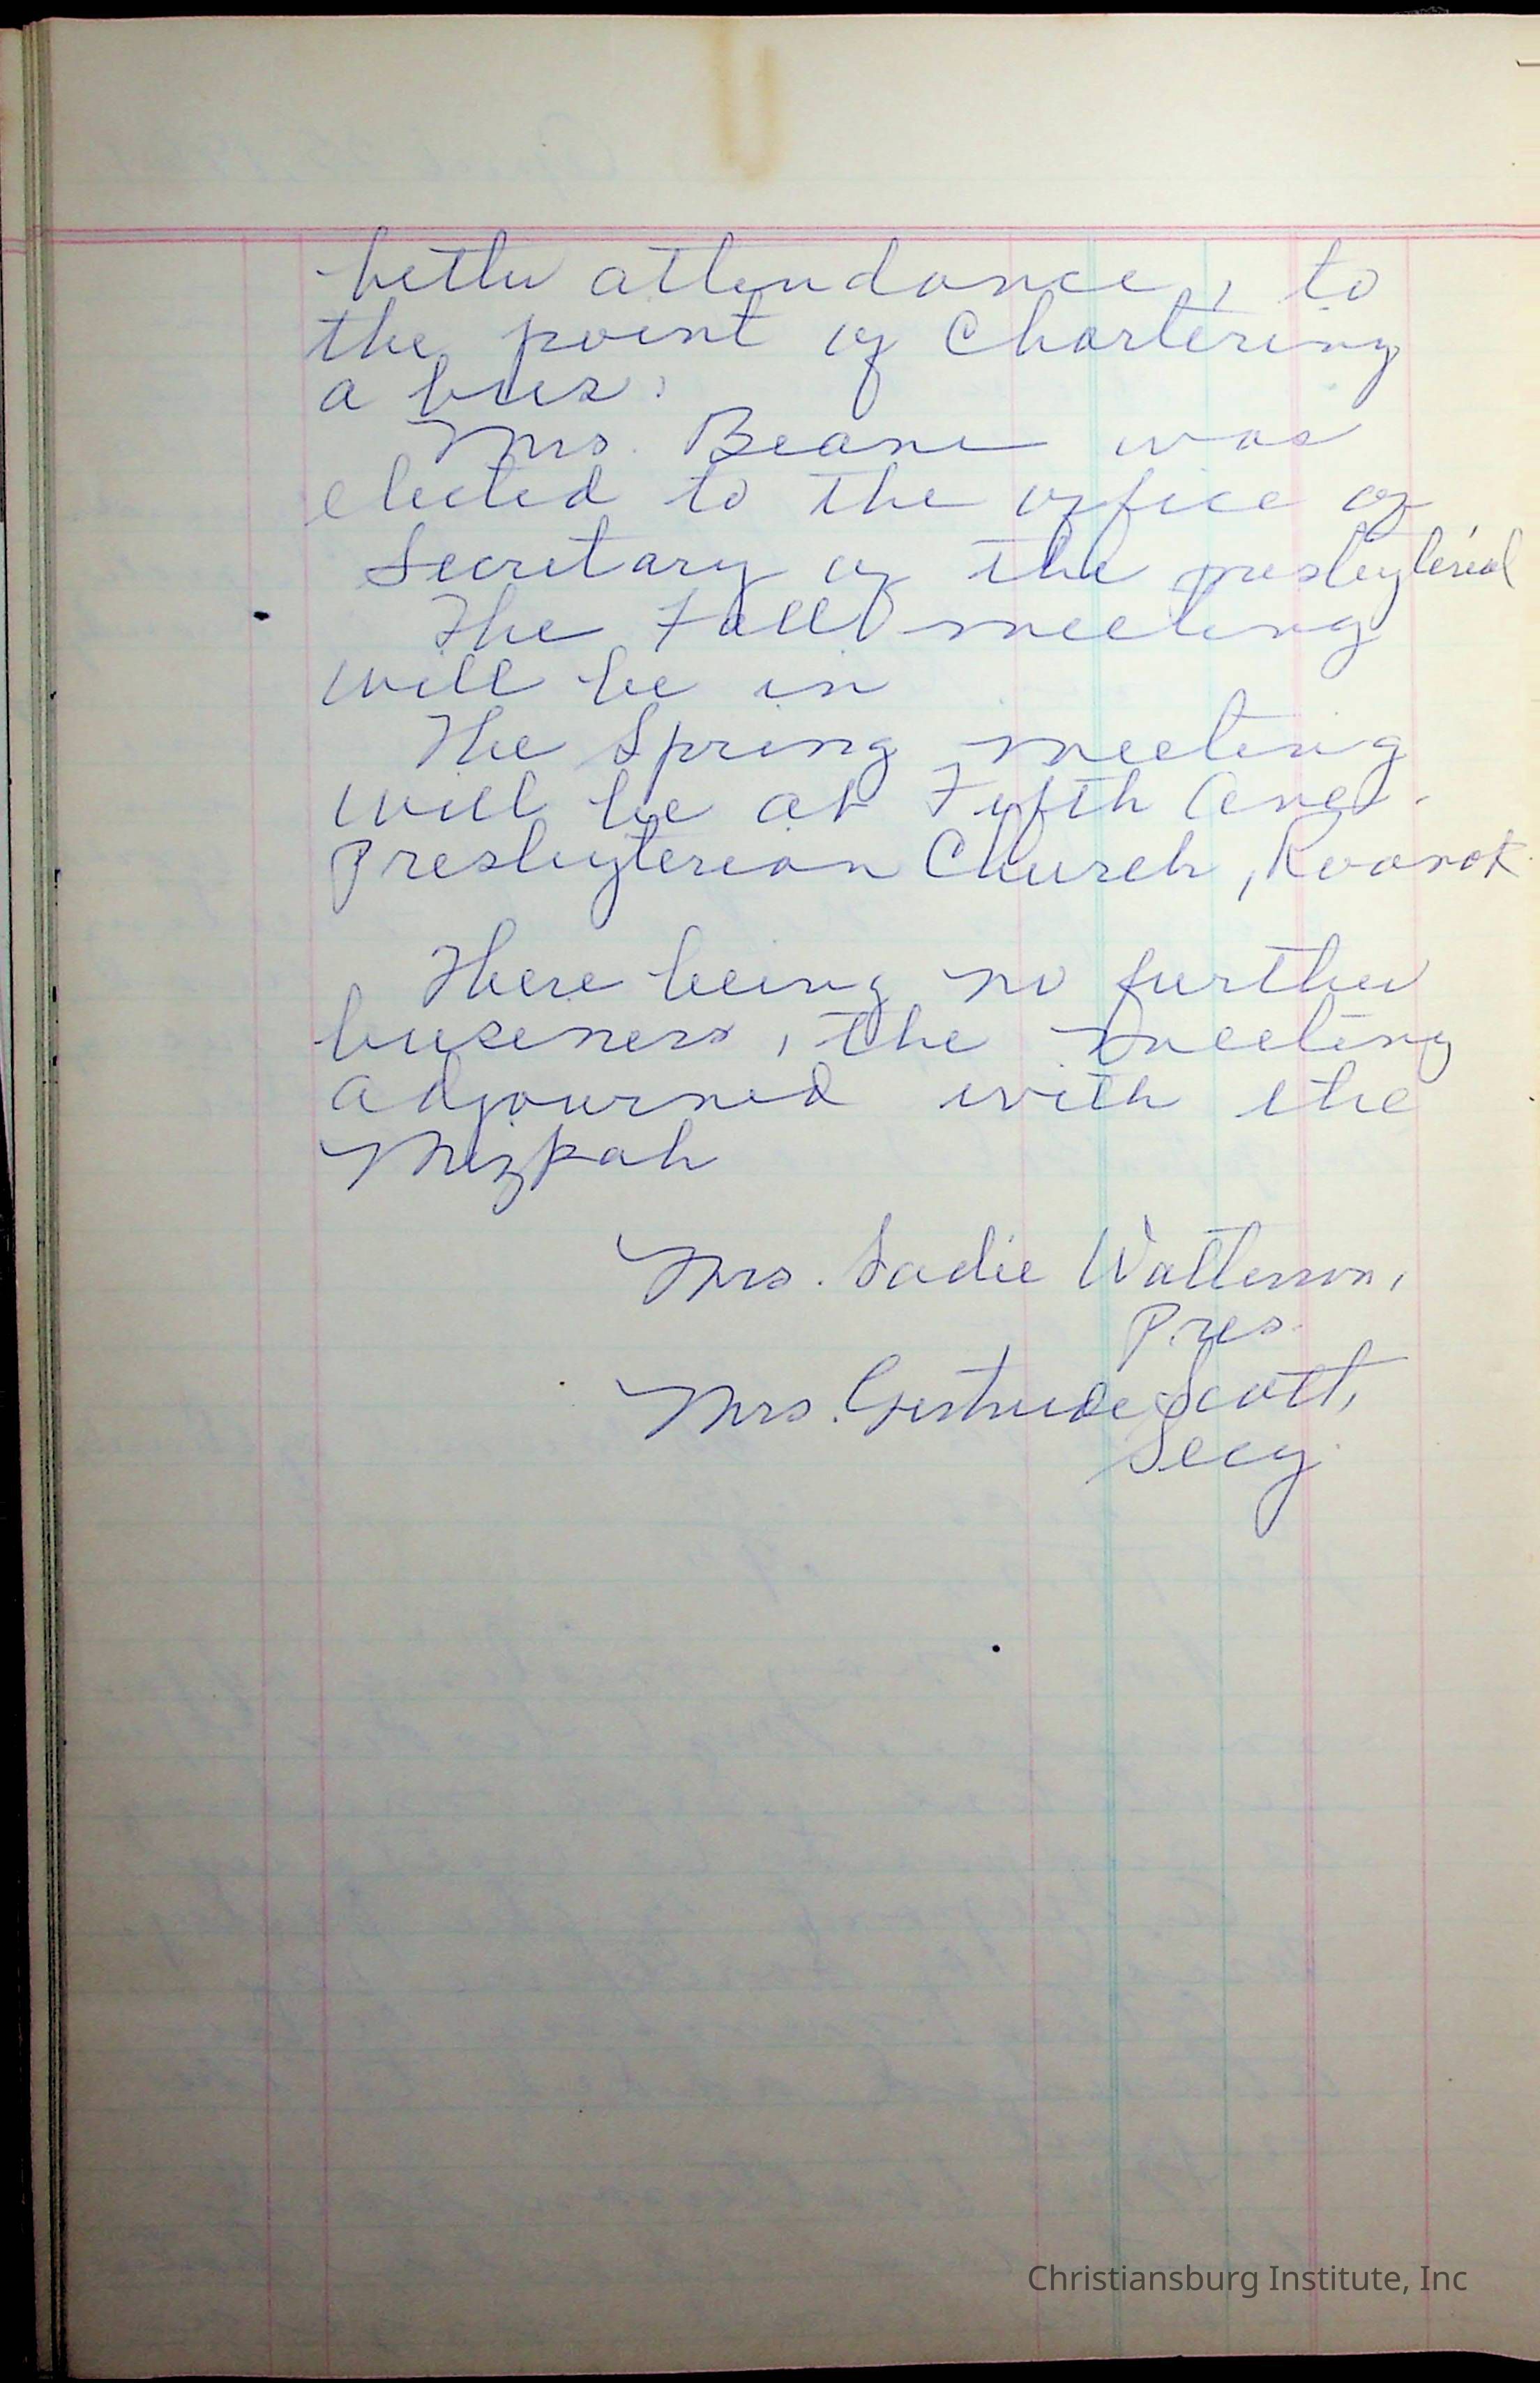 better attendance, to
the point of Chartering
a bus.
Mrs. Beane was
elected to the office of
Secretary of the presbyterial
The Fall meeting
will be in
The Spring meeting
will be at Fifth Ave.
Presbyterian Church, Roanok
There being no further
business, the meeting
adjourned with the
Mizpah
Mrs. Sadie Watterson,
Pres.
Mrs. Gertrude Scott,
Secy.
Christiansburg Institute, Inc